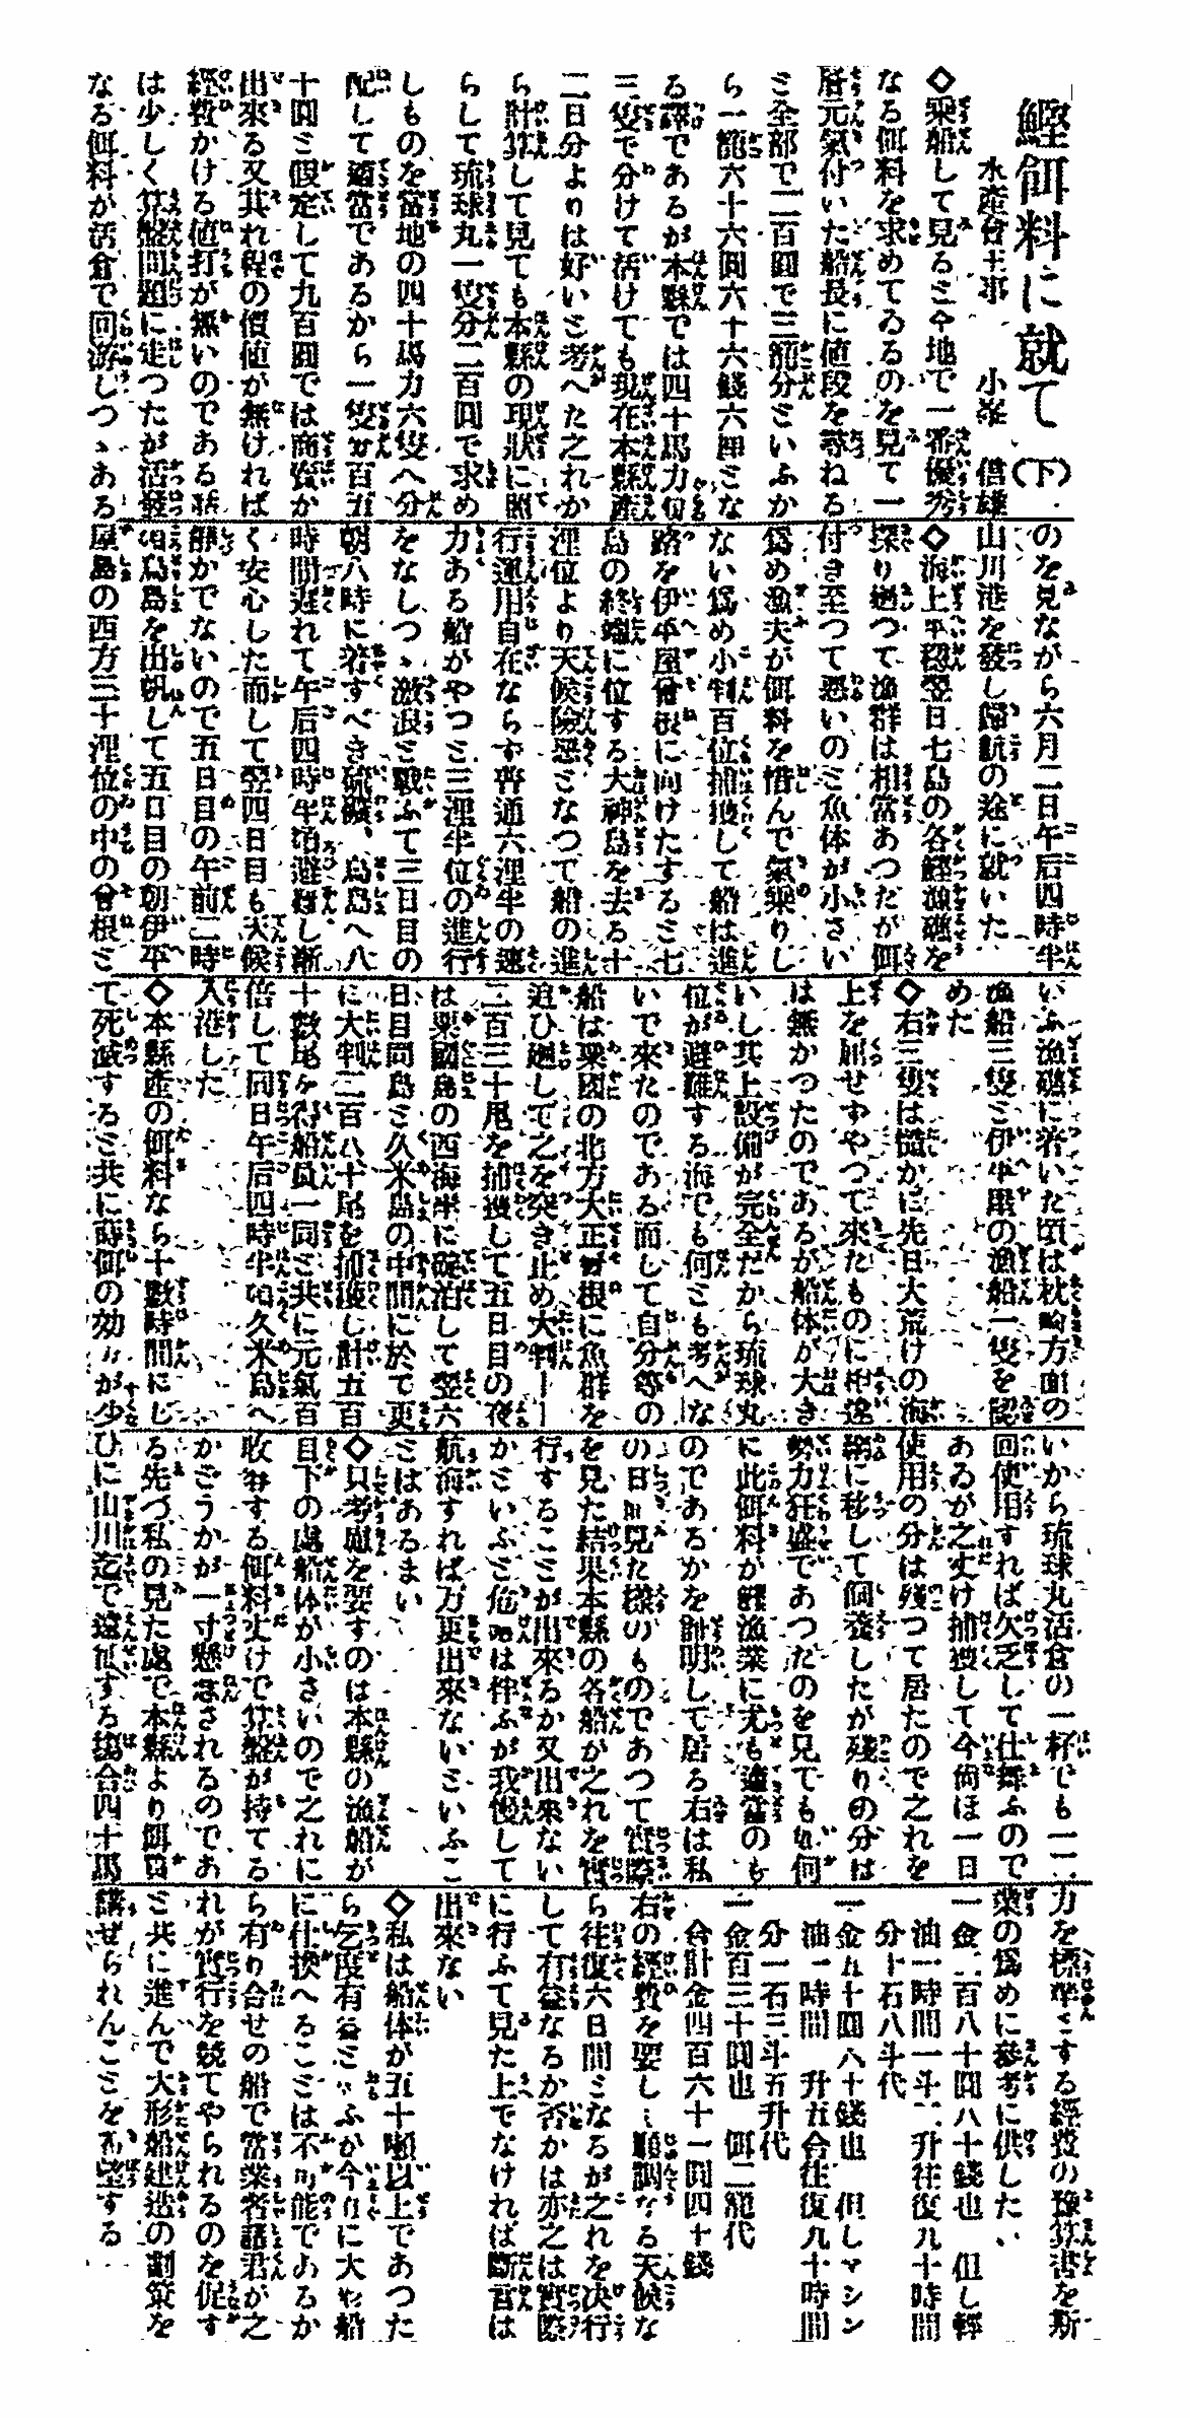 鰹餌料に就て（下）
水産會主事　小峯　信雄
◇乗船して見るミ今地で一番優秀
なる餌料を求めてゐるのを見て一
層元氣付いた船長に値段を尋ねる
ミ全部で二百圓で三籠分ミいふか
ら一籠六十六圓六十六錢六厘ミな
る譯であるが本縣では四十馬力毎
三隻で分けて活けても現在本縣産
二日分よりは好いミ考へた之れか
ら計算して見ても本縣の現狀に照
らして琉球丸一隻分二百圓で求め
しものを當地の四十馬力六隻へ分
配して適當であるから一隻分百五
十圓ミ假定して九百圓では商賣か
出來る又其れ程の價値が無ければ
經費かける値打が無いのである話
は少しく算盤問題に走つたが活潑
なる餌料が活倉で回游しつゝある
のを見ながら六月二日午后四時半
山川港を發し歸航の途に就いた
◇海上平穏翌日七島の各鰹漁礁を
探り廻つて漁群は相當あつたが餌
付き至つて悪いのミ魚体が小さい
爲め漁夫が餌料を惜んで氣乗りし
ない爲め小判百位捕獲して船は進
路を伊平屋曾根に向けたするミ七
島の終端に位する大神島を去る十
浬位より天候險惡ミなつて船の進
行運用自在ならず普通六浬半の速
力ある船がやつミ三浬半位の進行
をなしつゝ激浪ミ戰ふて三日目の
朝八時に着すべき硫礦、鳥島へ八
時間遅れて午后四時半泊避難し漸
く安心した而して翌四日目も天候
靜かでないので五日目の午前二時
頃鳥島を出帆して五日目の朝伊平
屋島の西方三十浬位の中の曾根ミ
いふ漁礁に着いた頃は枕崎方面の
漁船三隻ミ伊平屋の漁船一隻を認
めた
◇右三隻は慥かに先日大荒けの海
上を屈せずやつて來たものに相違
は無かつたのであるが船体が大き
いし其上設備が完全だから琉球丸
位が避難する海でも何ミも考へな
いで來たのである而して自分等の
船は粟國の北方大正曾根に魚群を
追ひ廻して之を突き止め大判
二百三十尾を捕獲して五日目の夜
は粟國島の西海岸に碇泊して翌六
日目同島ミ久米島の中間に於て更
に大判二百八十尾を捕獲し計五百
十數尾を得船員一同ミ共に元氣百
倍して同日午后四時半頃久米島へ
入港した
◇本縣産の餌料なら十數時間にし
て死滅するミ共に蒔餌の効力が少
いから琉球丸活倉の一杯でも一二
回使用すれば欠乏して仕舞ふので
あるが之丈け捕獲して今尚ほ一日
使用の分は残つて居たので之れを
網に移して個發したが残りの分は
勢力狂盛であつたのを見ても如何
に此餌料が鰹漁業に尤も適當のも
のであるかを証明して居る右は私
の日頃見た樣のものであつて實際
を見た結果本縣の各船が之れを實
行するこミが出來るか又出來ない
かミいふミ危險は伴ふが我慢して
航海すれば万更出來ないミいふこ
ミはあるまい
◇只考慮を要すのは本縣の漁船が
目下の處船体が小さいので之れに
收容する餌料丈けで算盤が持てる
かどうかが一寸懸念されるのであ
る先づ私の見た處で本縣より餌買
ひに山川迄で遠征する塲合四十馬
力を標準ミする經費の豫算書を斯
業の爲めに參考に供したい
一金二百八十圓八十錢也　但し輕
油一時間一斗二升往復九十時間
分十石八斗代
一金五十圓八十錢也　但しマシン
油一時間一升五合往復九十時間
分一石三斗五升代
一金百三十圓也　餌二籠代
合計金四百六十一圓四十錢
右の經費を要し順調なる天候な
ら往復六日間ミなるが之れを决行
して有益なるか否かは亦之は實際
に行ふて見た上でなければ斷言は
出來ない
◇私は船体が五十噸以上であつた
ら乞度有益ミいふか今直に大形船
に仕換へるこミは不可能であるか
ら有り合せの船で當業者諸君が之
れが實行を競てやられるのを促す
ミ共に進んで大形船建造の劃策を
講ぜられんこミを希望する